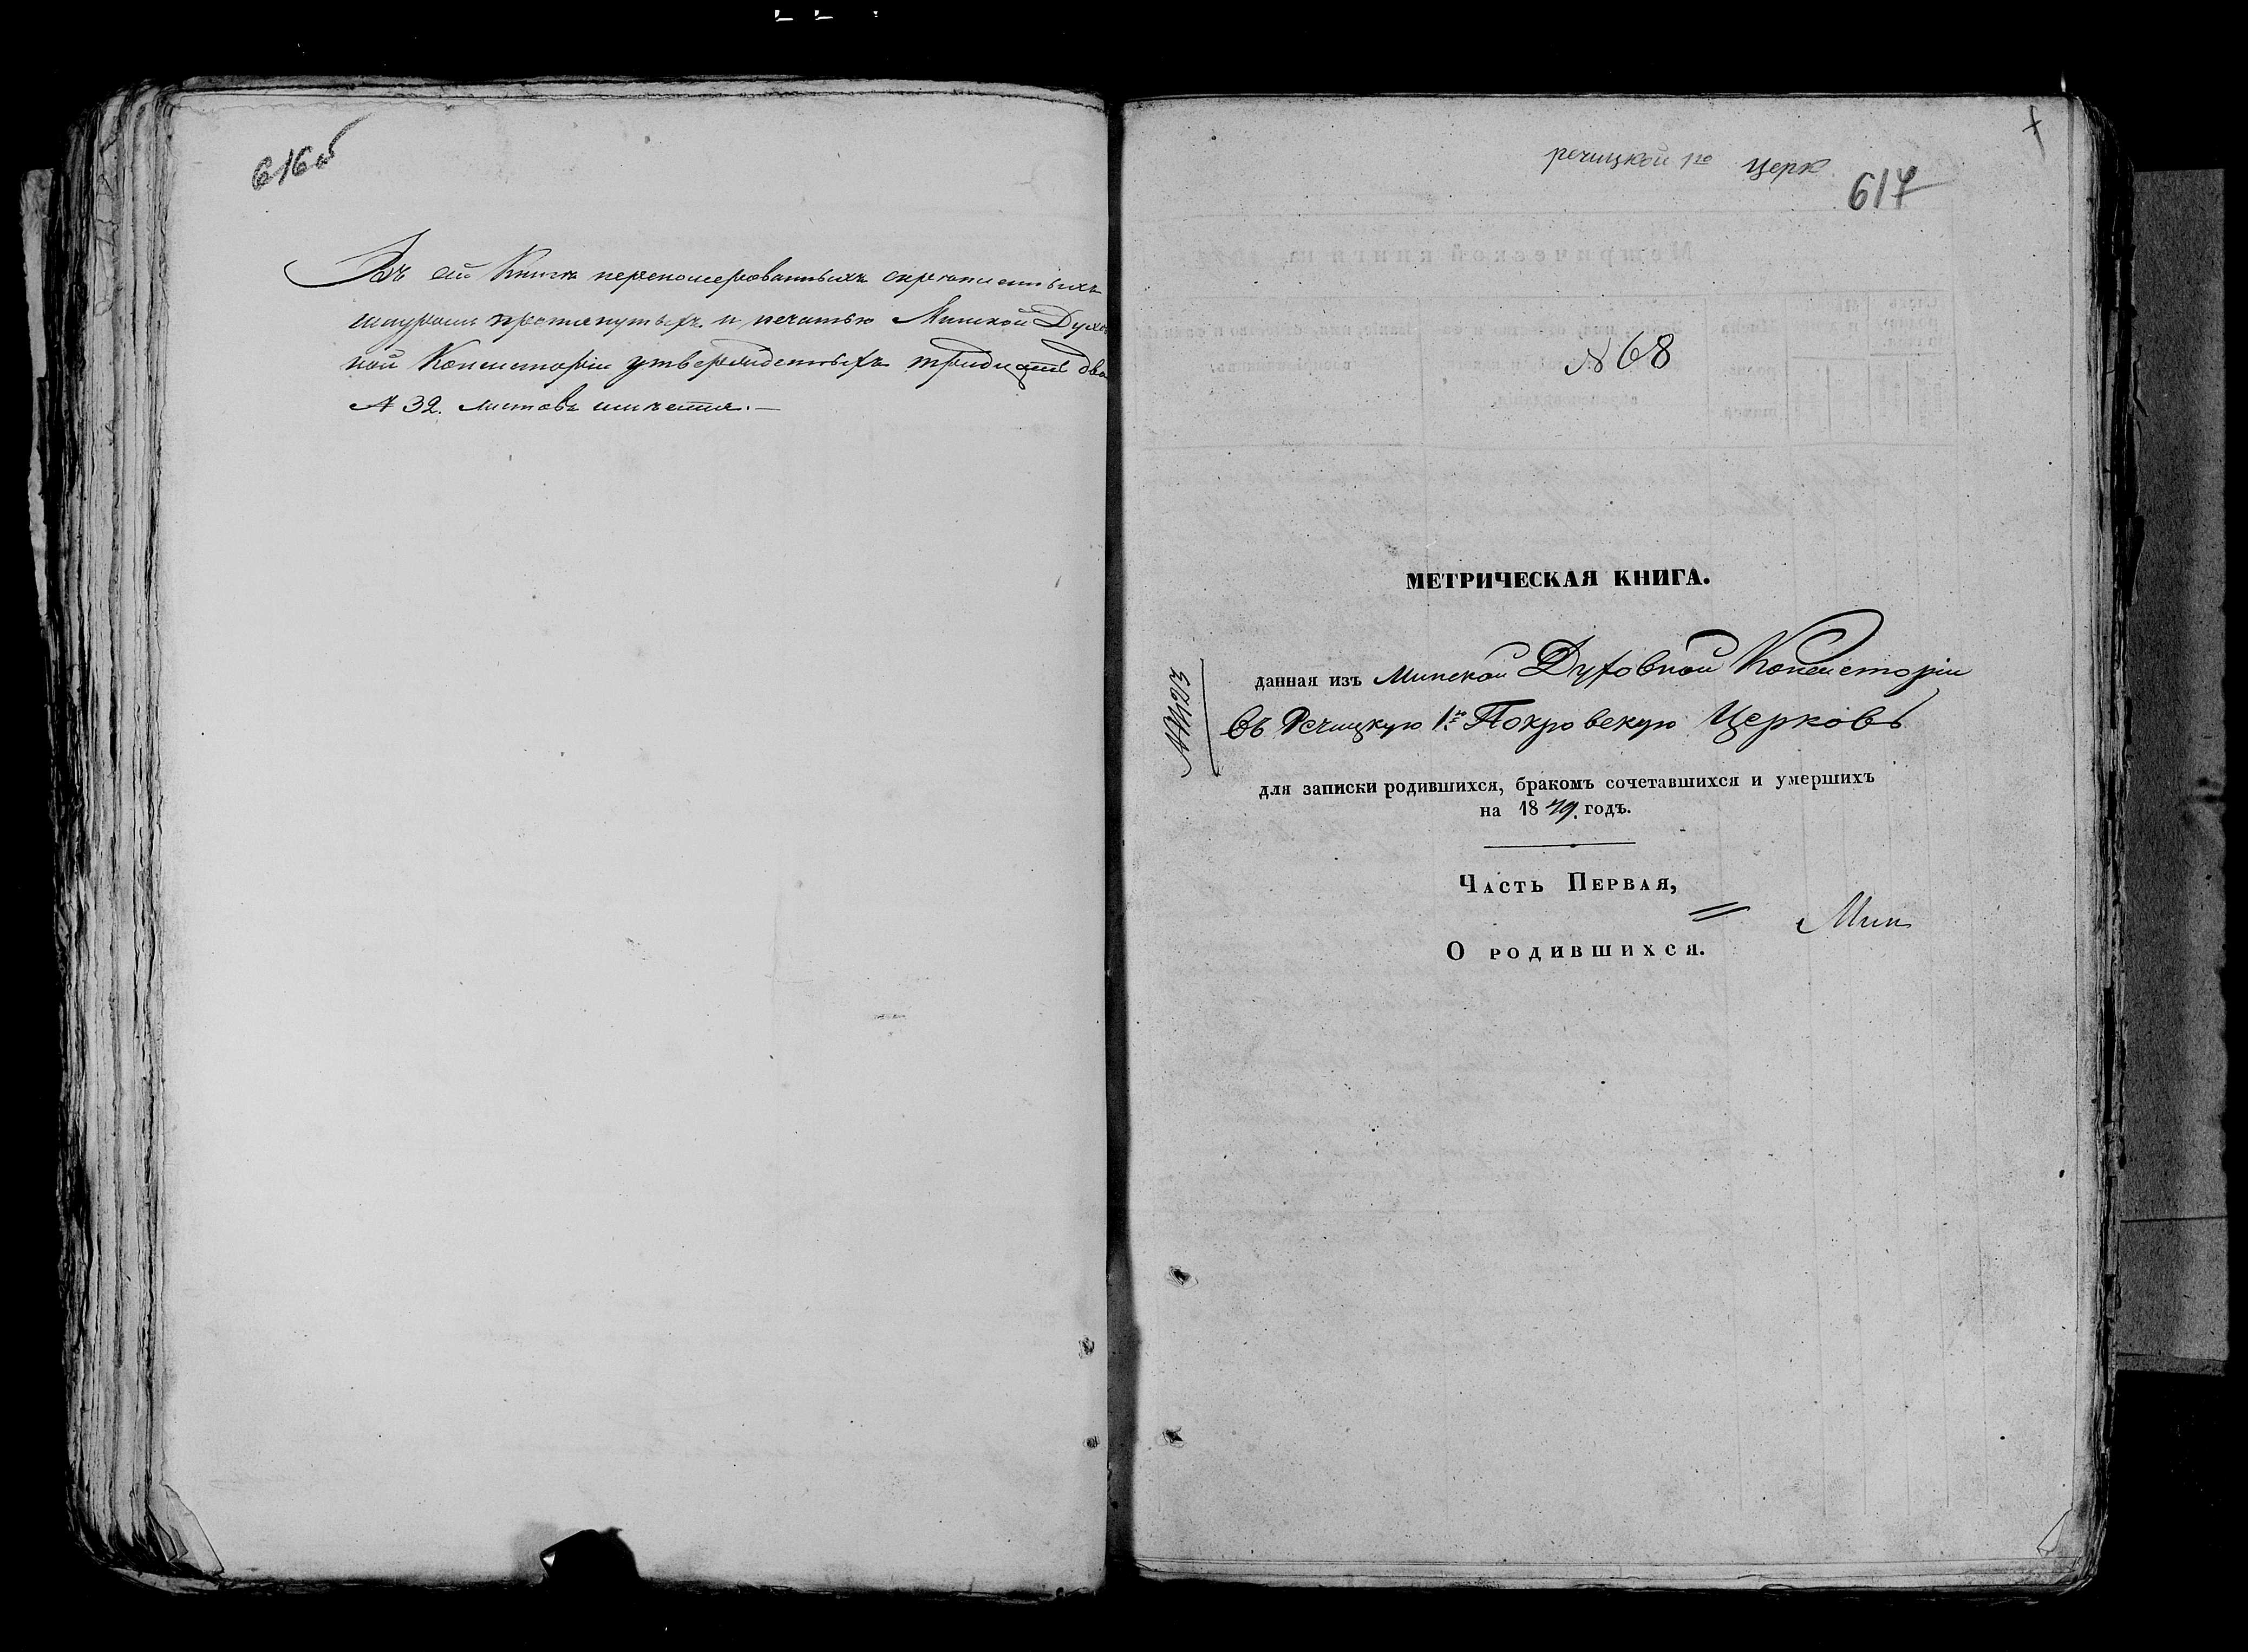 616об
Въ сей Книгѣ перенумерованныхъ скрепленныхъ
шнуромъ протянутыхъ и печатью Минской Духов
ной Консисторіи утвержденныхъ тридцать два
№ 32. листовъ имѣется.—
речицкой церк
617
№ 68
МЕТРИЧЕСКАЯ КНИГА.
данная изъ Минской Духовной Консисторіи
въ Речицкую 1ю Покровскую Церковь
для записки родившихся, бракомъ сочетавшихся и умершихъ
на 1879. годъ.
Часть Первая,
Мин
О родившихся.